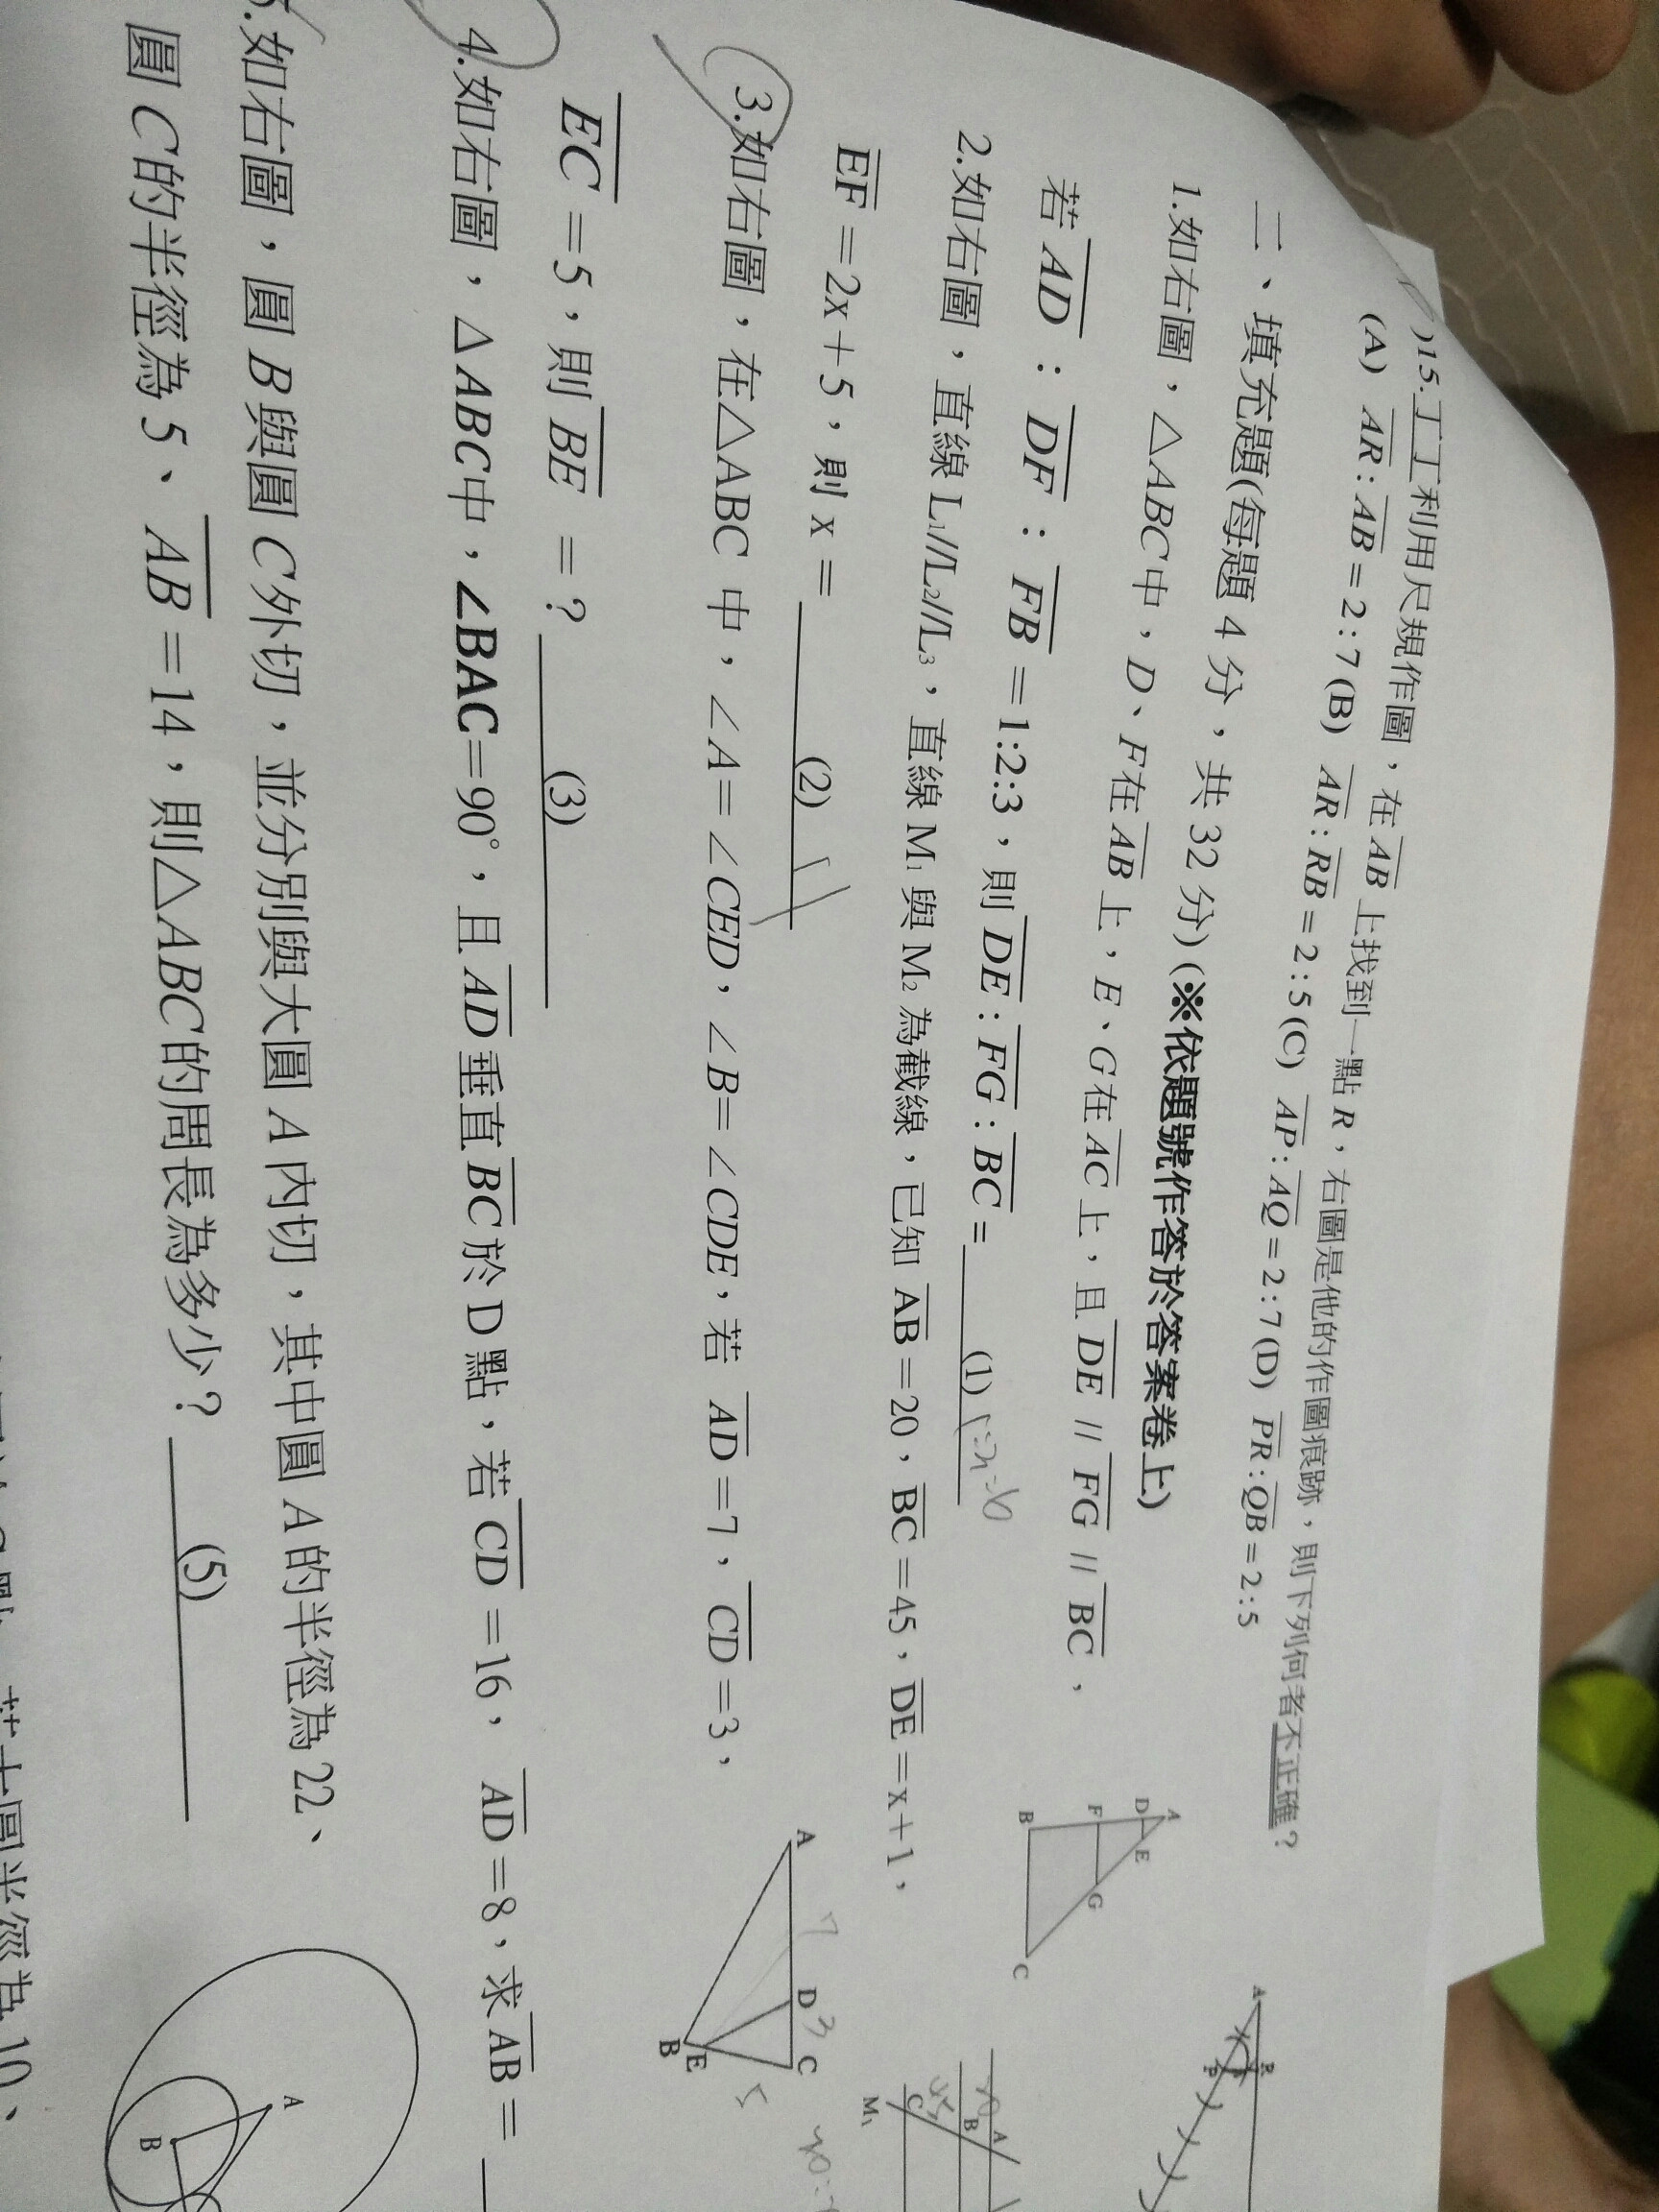 )15.工工利用尺規作圖，在AB上找到一點R，右圖是他的作圖痕跡，則下列何者不正確？
(A) AR:AB=2:7(B) AR:RB=2:5(C) AP:AQ=2:7(D) PR:QB=2:5
A
R
P
二、填充題(每題 4 分，共 32 分)(※依題號作答於答案卷上)
1.如右圖，△ABC中，D、F在AB上，E、G在AC上，且DE // FG // BC，
若AD：DF：FB=1:2:3，則DE:FG:BC= (1) 1:3:6
A
D
E
F
G
B
C
2.如右圖，直線 L1//L2//L3，直線 M1 與 M2 為截線，已知 AB=20，BC=45，DE=x+1，
EF=2x+5，則 x = (2)
20
45
A
B
C
M1
3.如右圖，在△ABC 中，∠A=∠CED，∠B=∠CDE，若 AD=7，CD=3，
EC=5，則BE =？ (3)
A
7
D
3
C
B
E
5
4.如右圖，△ABC中，∠BAC=90°，且AD垂直BC於 D 點，若CD=16，AD=8，求AB=
.如右圖，圓 B 與圓 C 外切，並分別與大圓 A 內切，其中圓 A 的半徑為 22、
圓 C 的半徑為 5、AB=14，則△ABC的周長為多少？ (5)
A
B